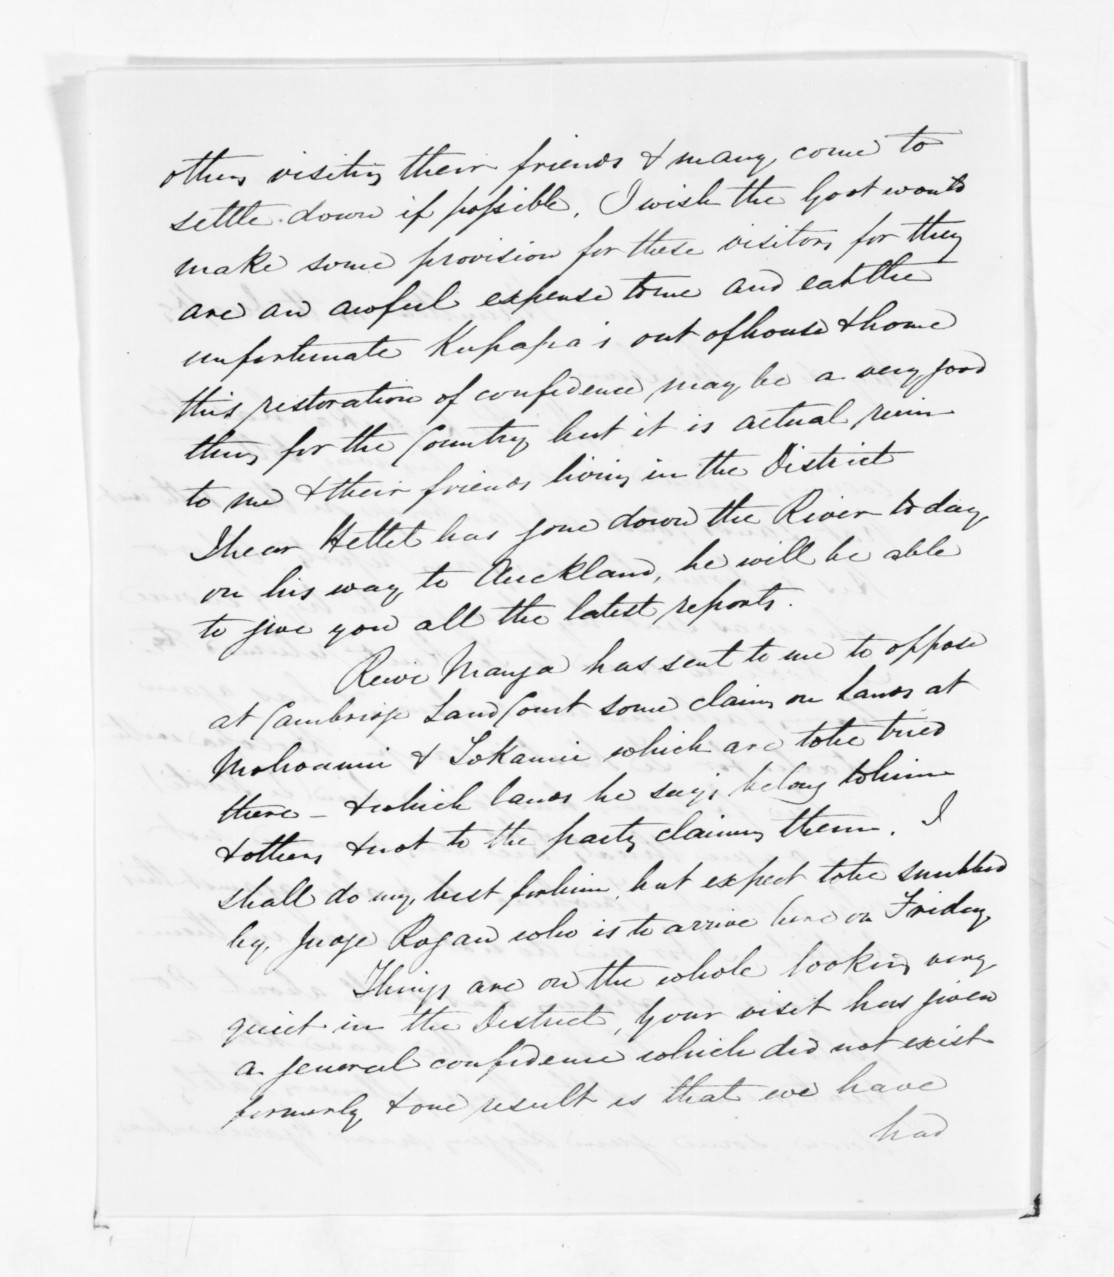 others visiting their friends & many come to
settle down if possible. I wish the Govt would
make some provision for these visitors for they
are an awful expense to me and eat the
unfortunate Kupapa's out of house & home
this restoration of confidence may be a very good
thing for the Country but it is actual ruin
to me & their friends living in the District
I hear Hettet has gone down the River to day
on his way to Auckland, he will be able
to give you all the latest reports.
Rewi Manga has sent to me to oppose
at Cambridge Land Court some claims on Lands at
& which are to be tried
there - & which lands he says belong to him
& others & not to the party claiming them. I
shall do my best for him but expect to be snubbed
by Judge Rogan who is to arrive here on Friday
Things are on the whole looking very
quiet in the District, Your visit has given
a general confidence which did not exist
formerly & one result is that we have
had